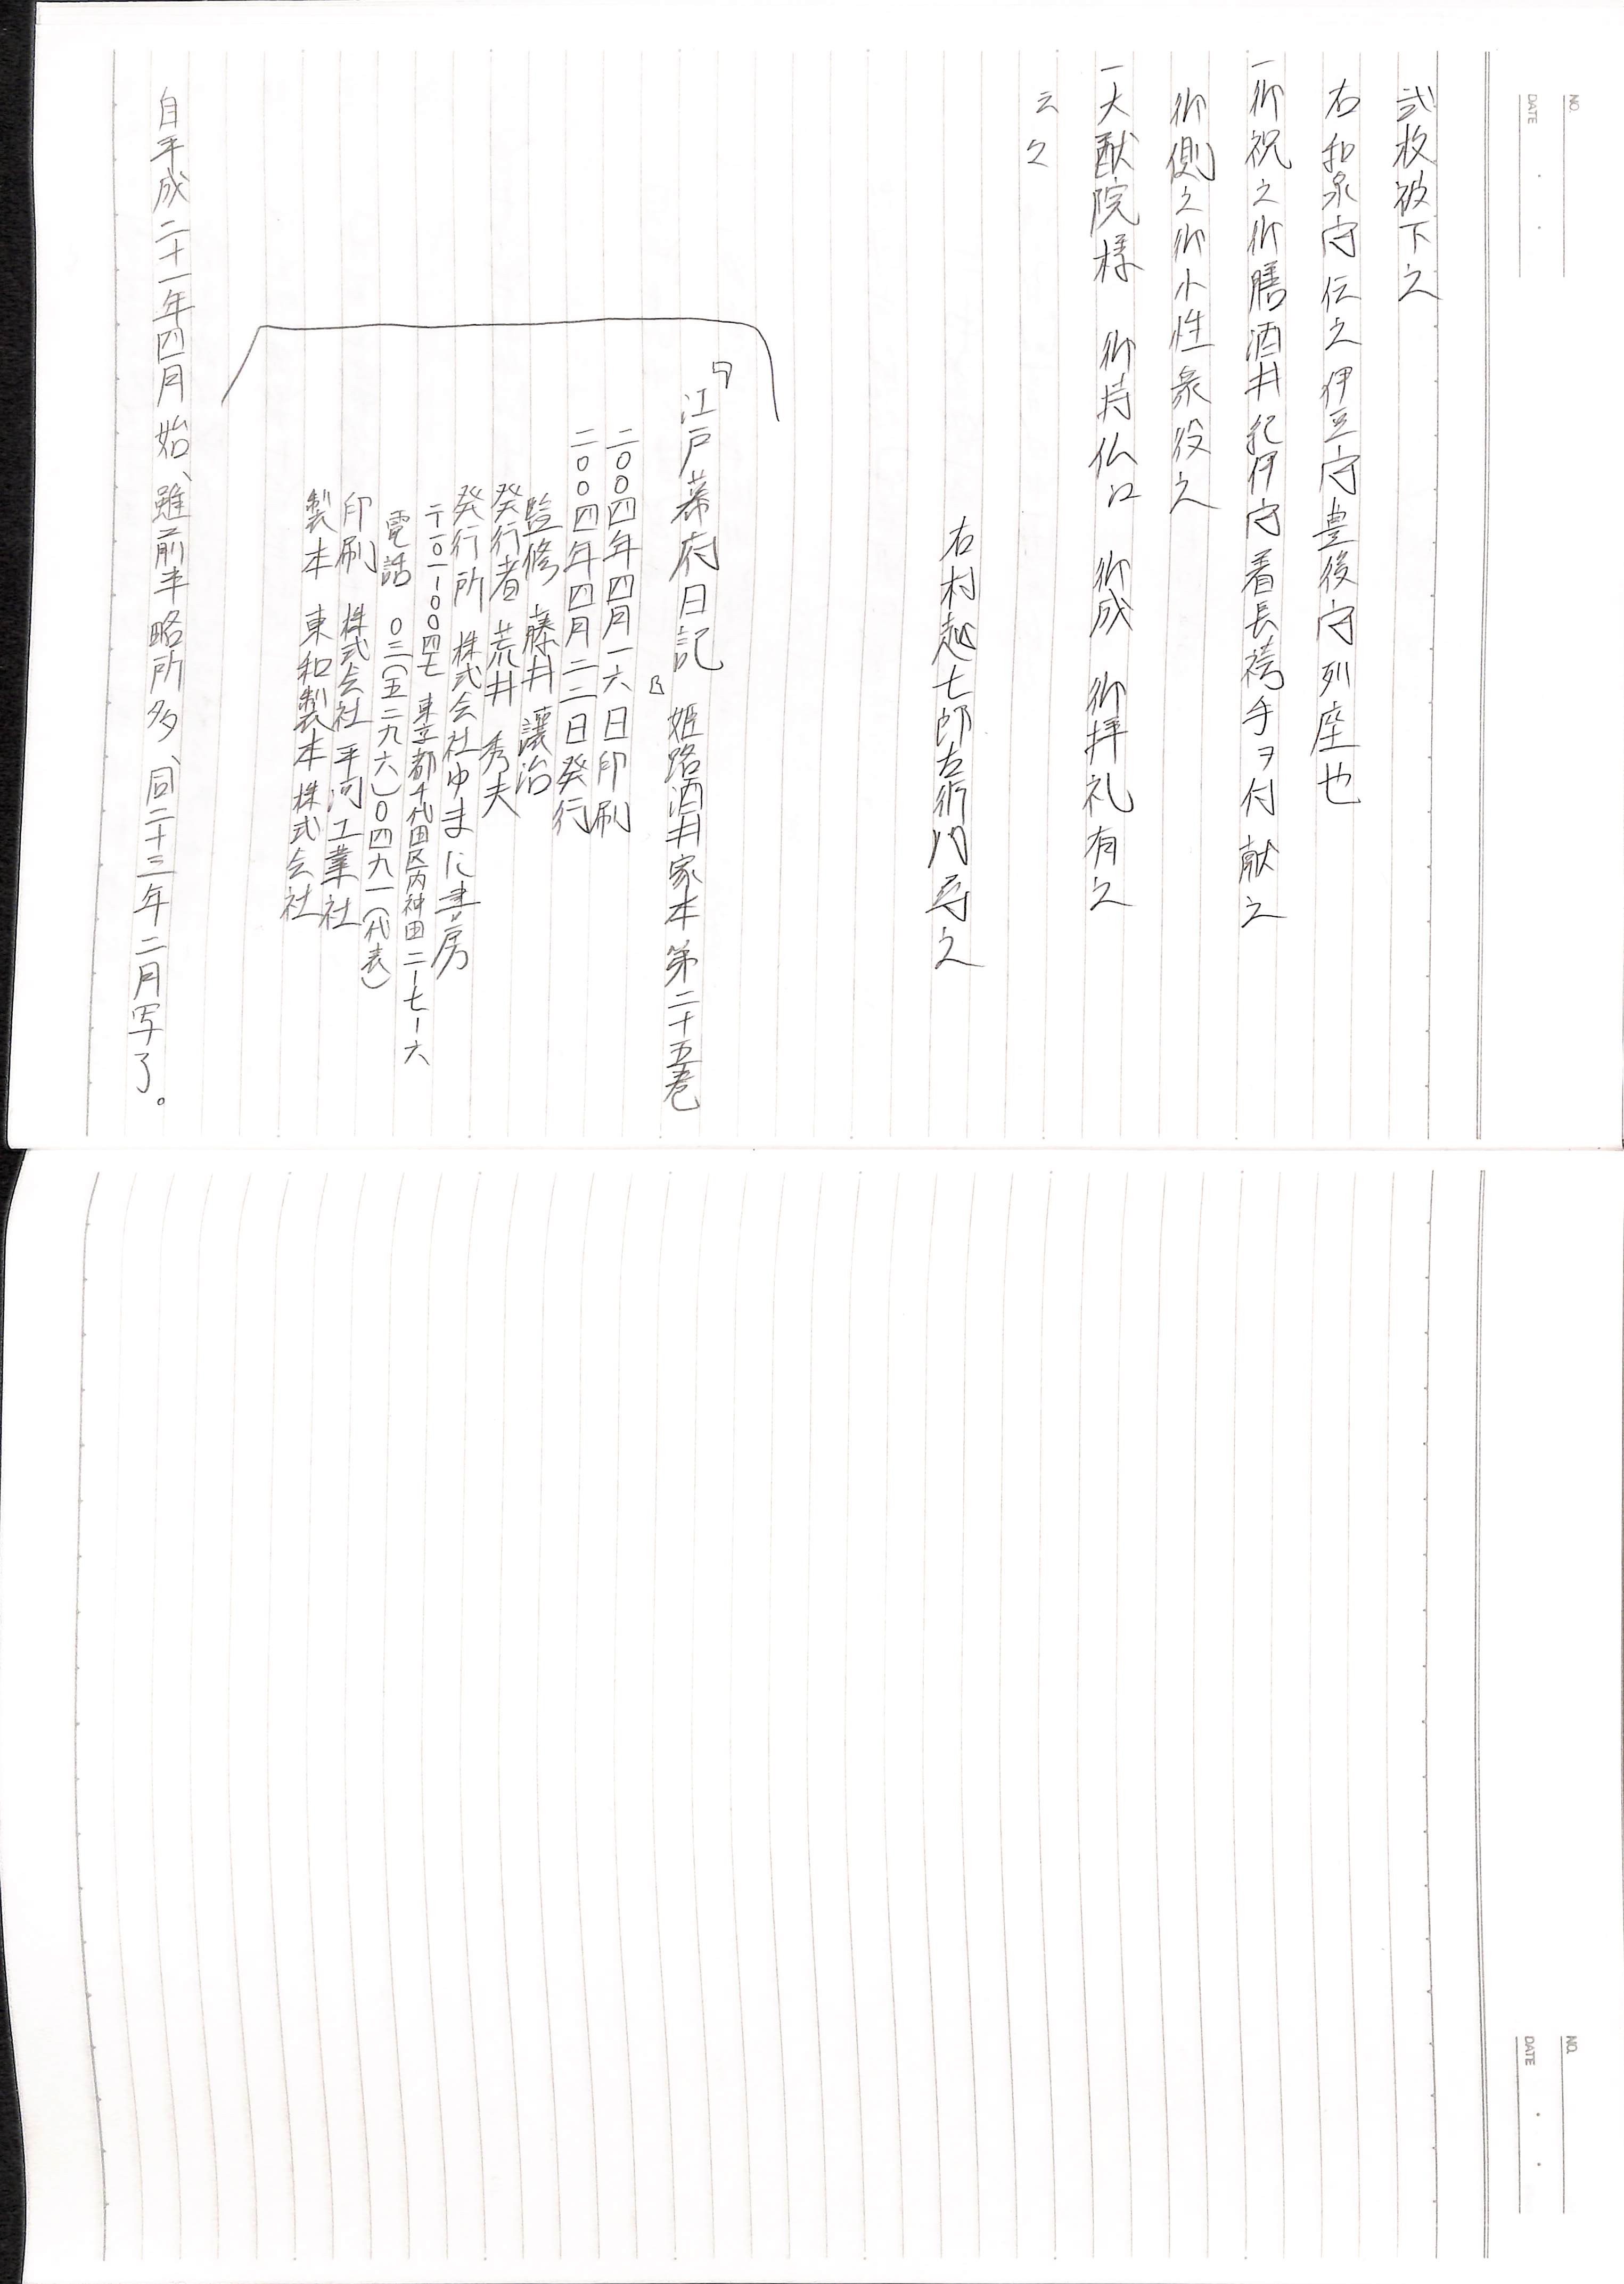 NO.
DATE
弐枚被下之
右和泉守伝之伊豆守豊後守列座也
一御祝之御膳酒井紀伊守着長袴手ヲ付献之
御側之御小性衆役之
一大猷院様 御持仏江 御成 御拝礼有之
云々
右村越七郎左衛門尋之
『江戸幕府日記』姫路酒井家本第二十五巻
二〇〇四年四月一六日印刷
二〇〇四年四月二二日発行
監修 藤井讓治
発行者 荒井秀夫
発行所 株式会社ゆまに書房
〒一〇一-〇〇四七 東京都千代田区内神田二-七-六
電話 〇三(五二九六)〇四九一(代表)
印刷 株式会社平河工業社
製本 東和製本株式会社
自平成二十一年四月始、雖前半略所多、同二十三年二月写了。
NO.
DATE